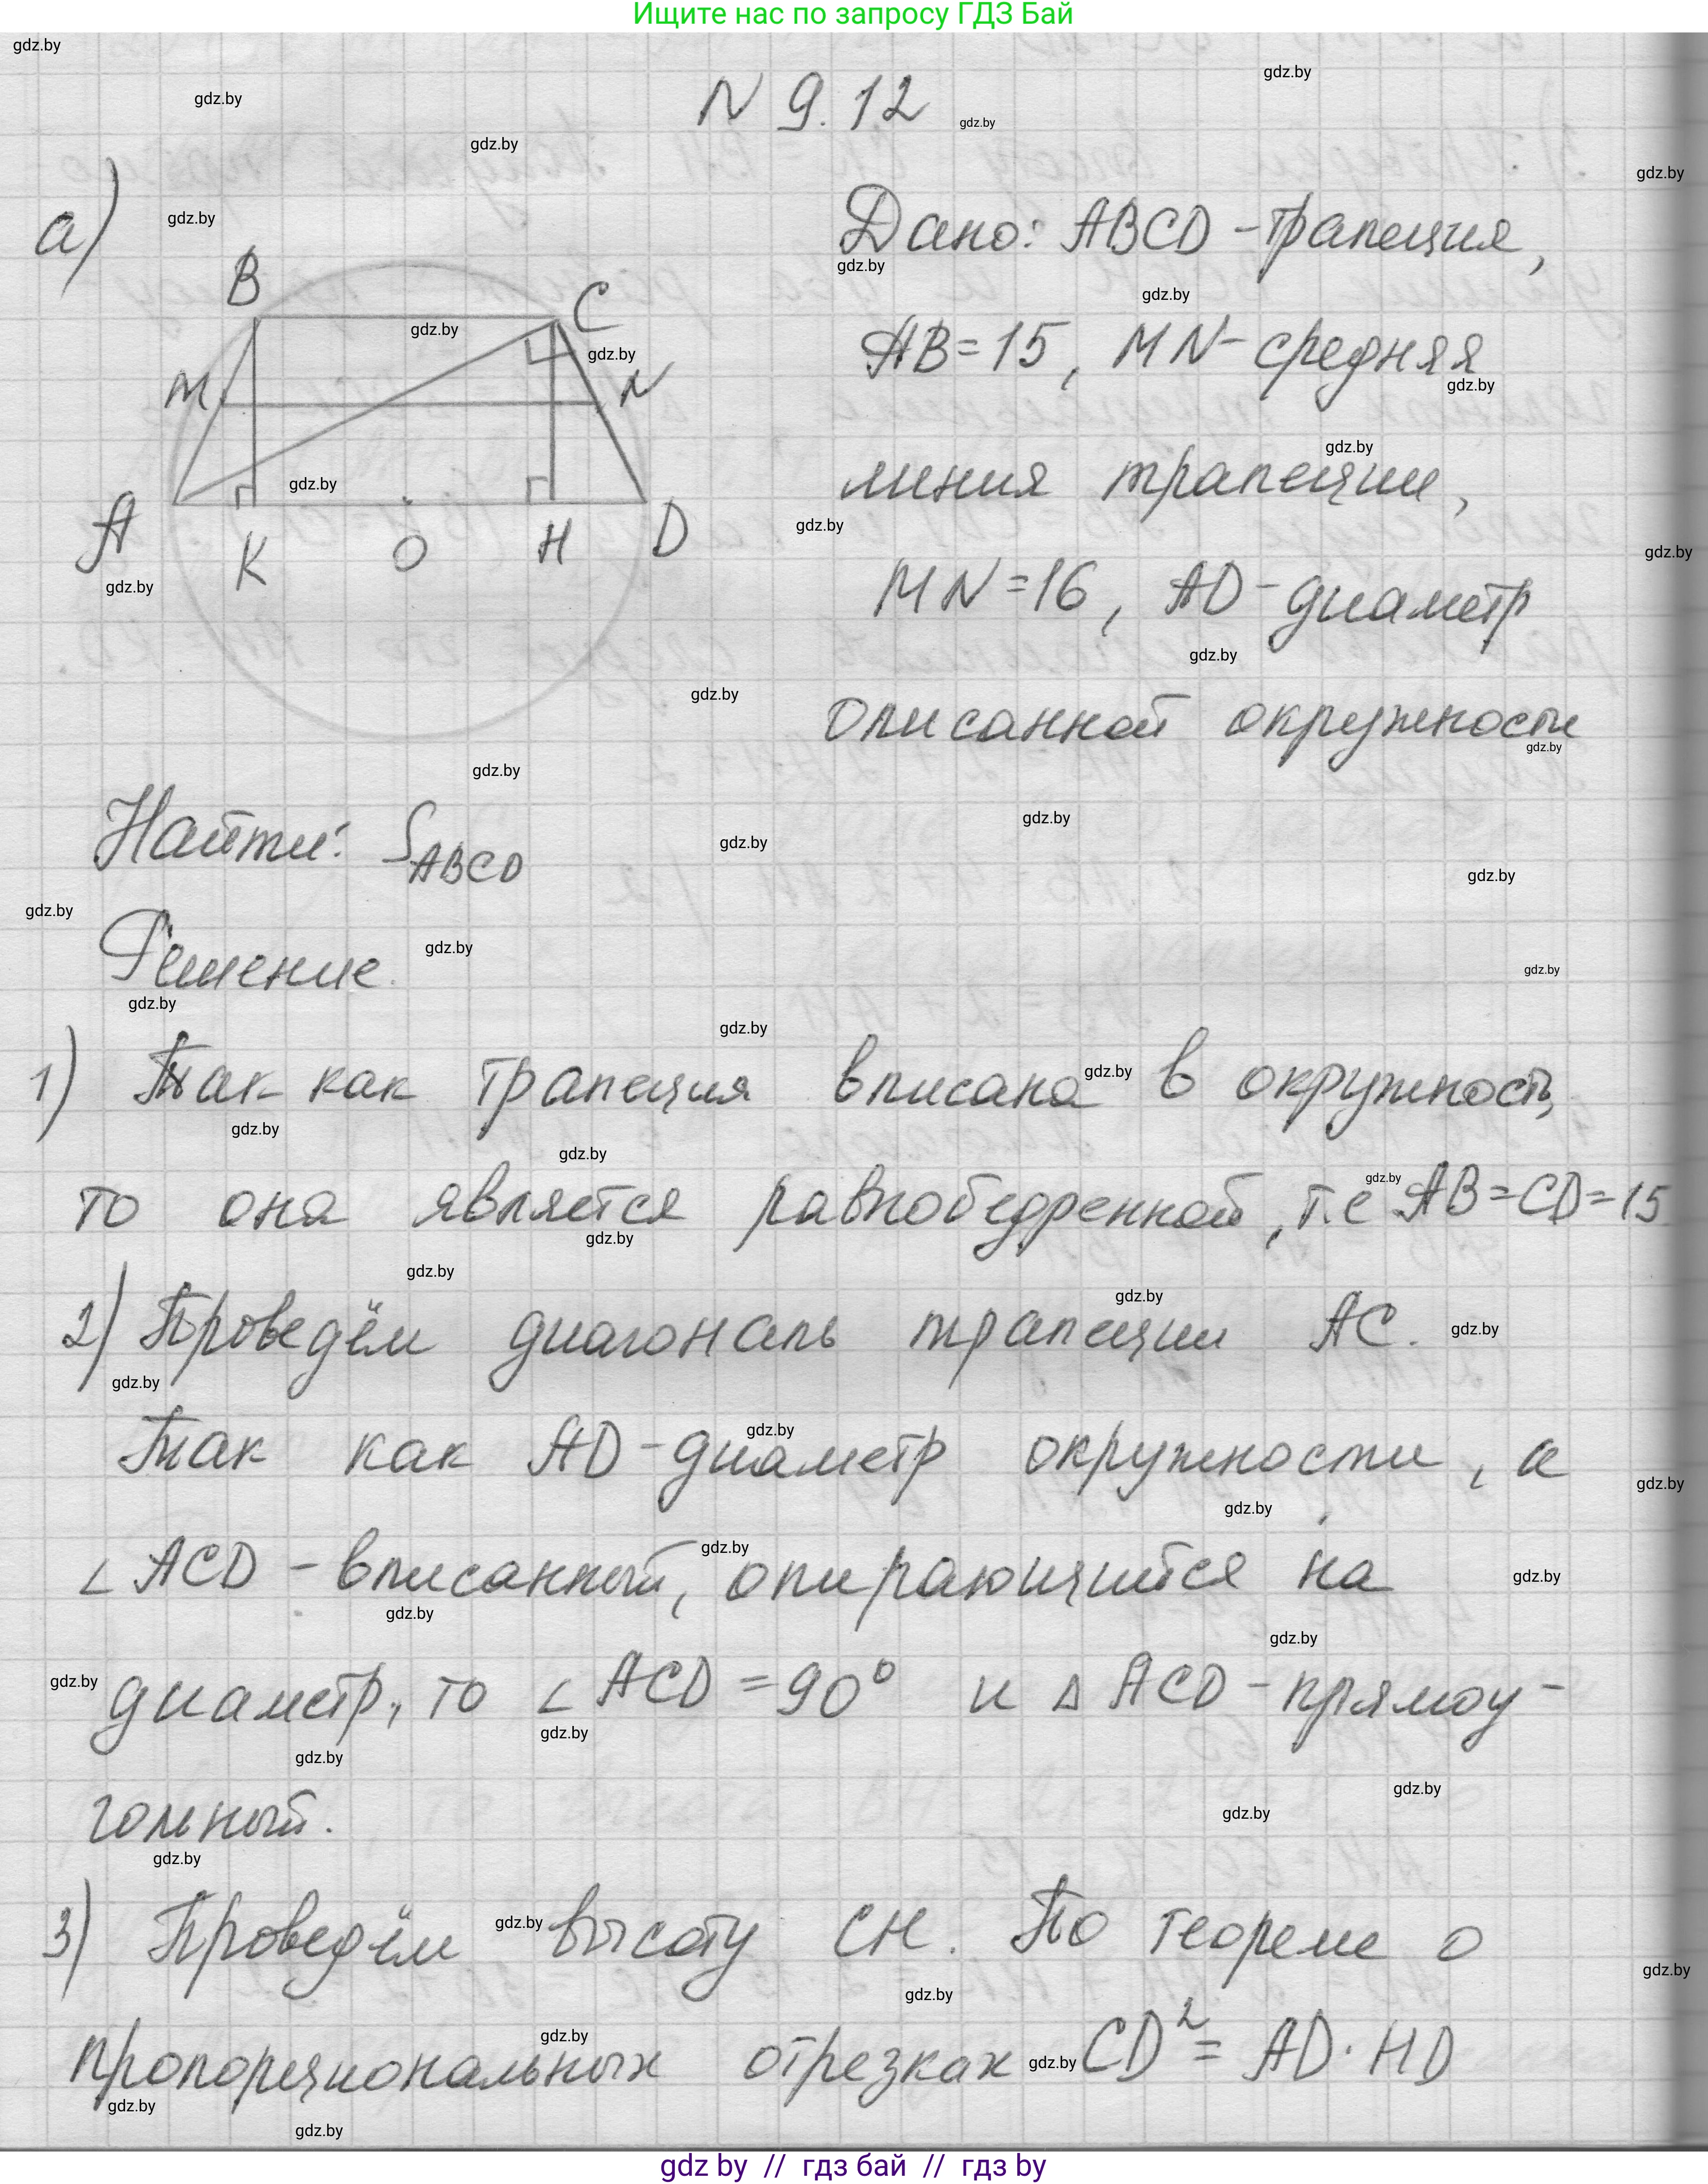 Ищите нас по запросу ГДЗ Бай
N 9.12
а)
Дано: ABCD - трапеция,
AB = 15, MN - средняя
линия трапеции,
MN = 16, AD - диаметр
описанной окружности
B
C
M
N
A
K
O
H
D
Найти: S ABCD
Решение.
1) Так как трапеция вписана в окружность,
то она является равнобедренной, т.е AB = CD = 15
2) Проведём диагональ трапеции AC.
Так как AD - диаметр окружности, а
∠ ACD - вписанный, опирающийся на
диаметр, то ∠ ACD = 90° и △ ACD - прямоу-
гольный.
3) Проведём высоту CH. По теореме о
пропорциональных отрезках CD² = AD · HD
gdz.by
gdz by // гдз бай // гдз by